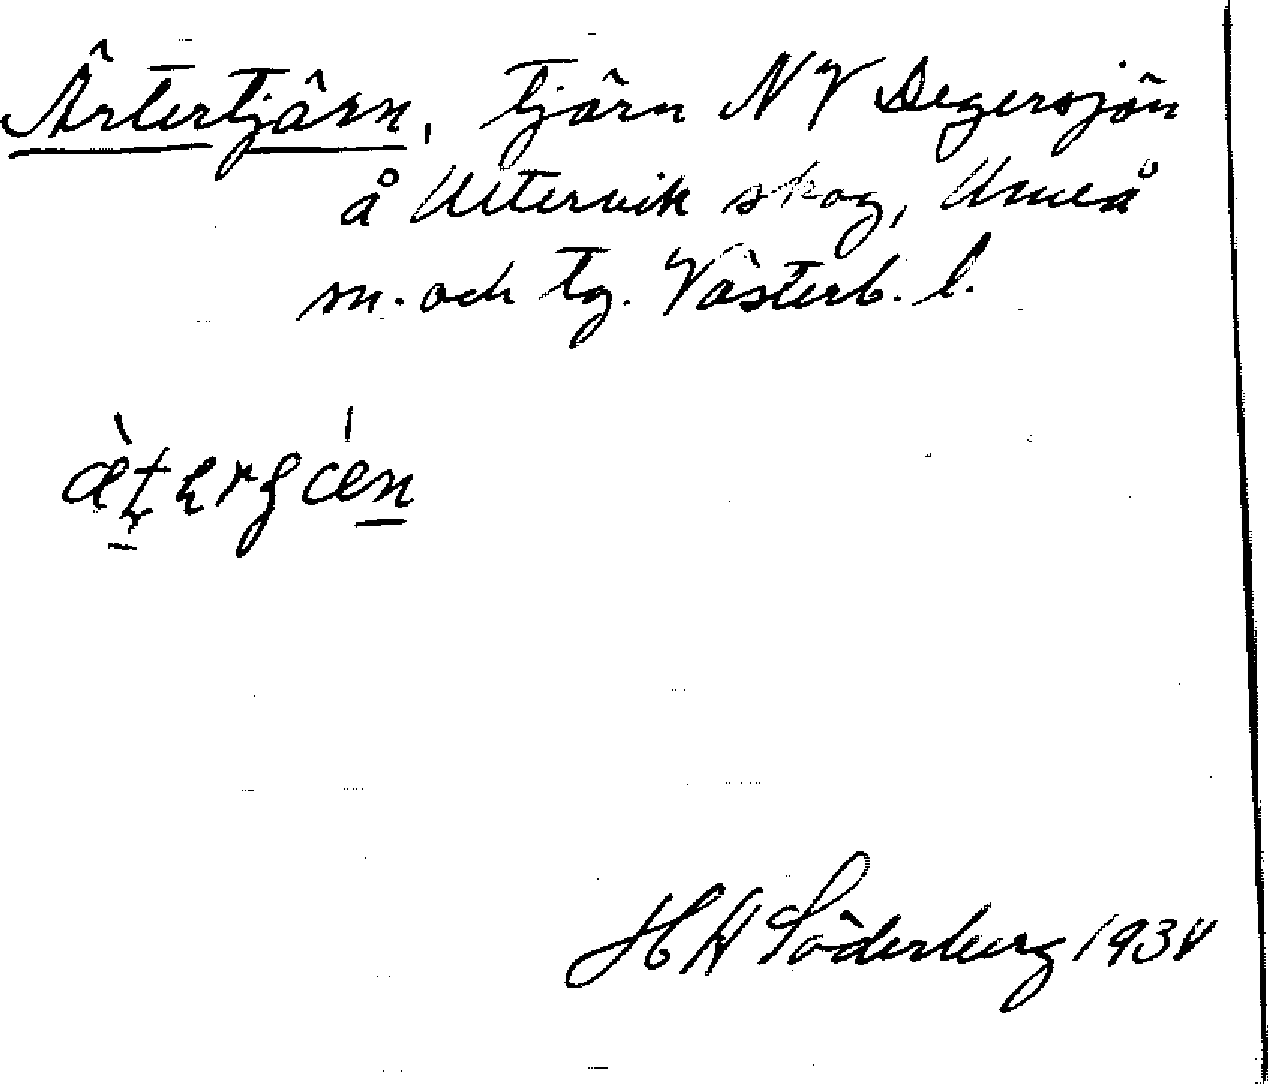 Ärtertjärn, tjärn NV Degersjön
å Ultervik skog, Umeå
m. och tg. Västerb. l.
H A Söderberg 1934